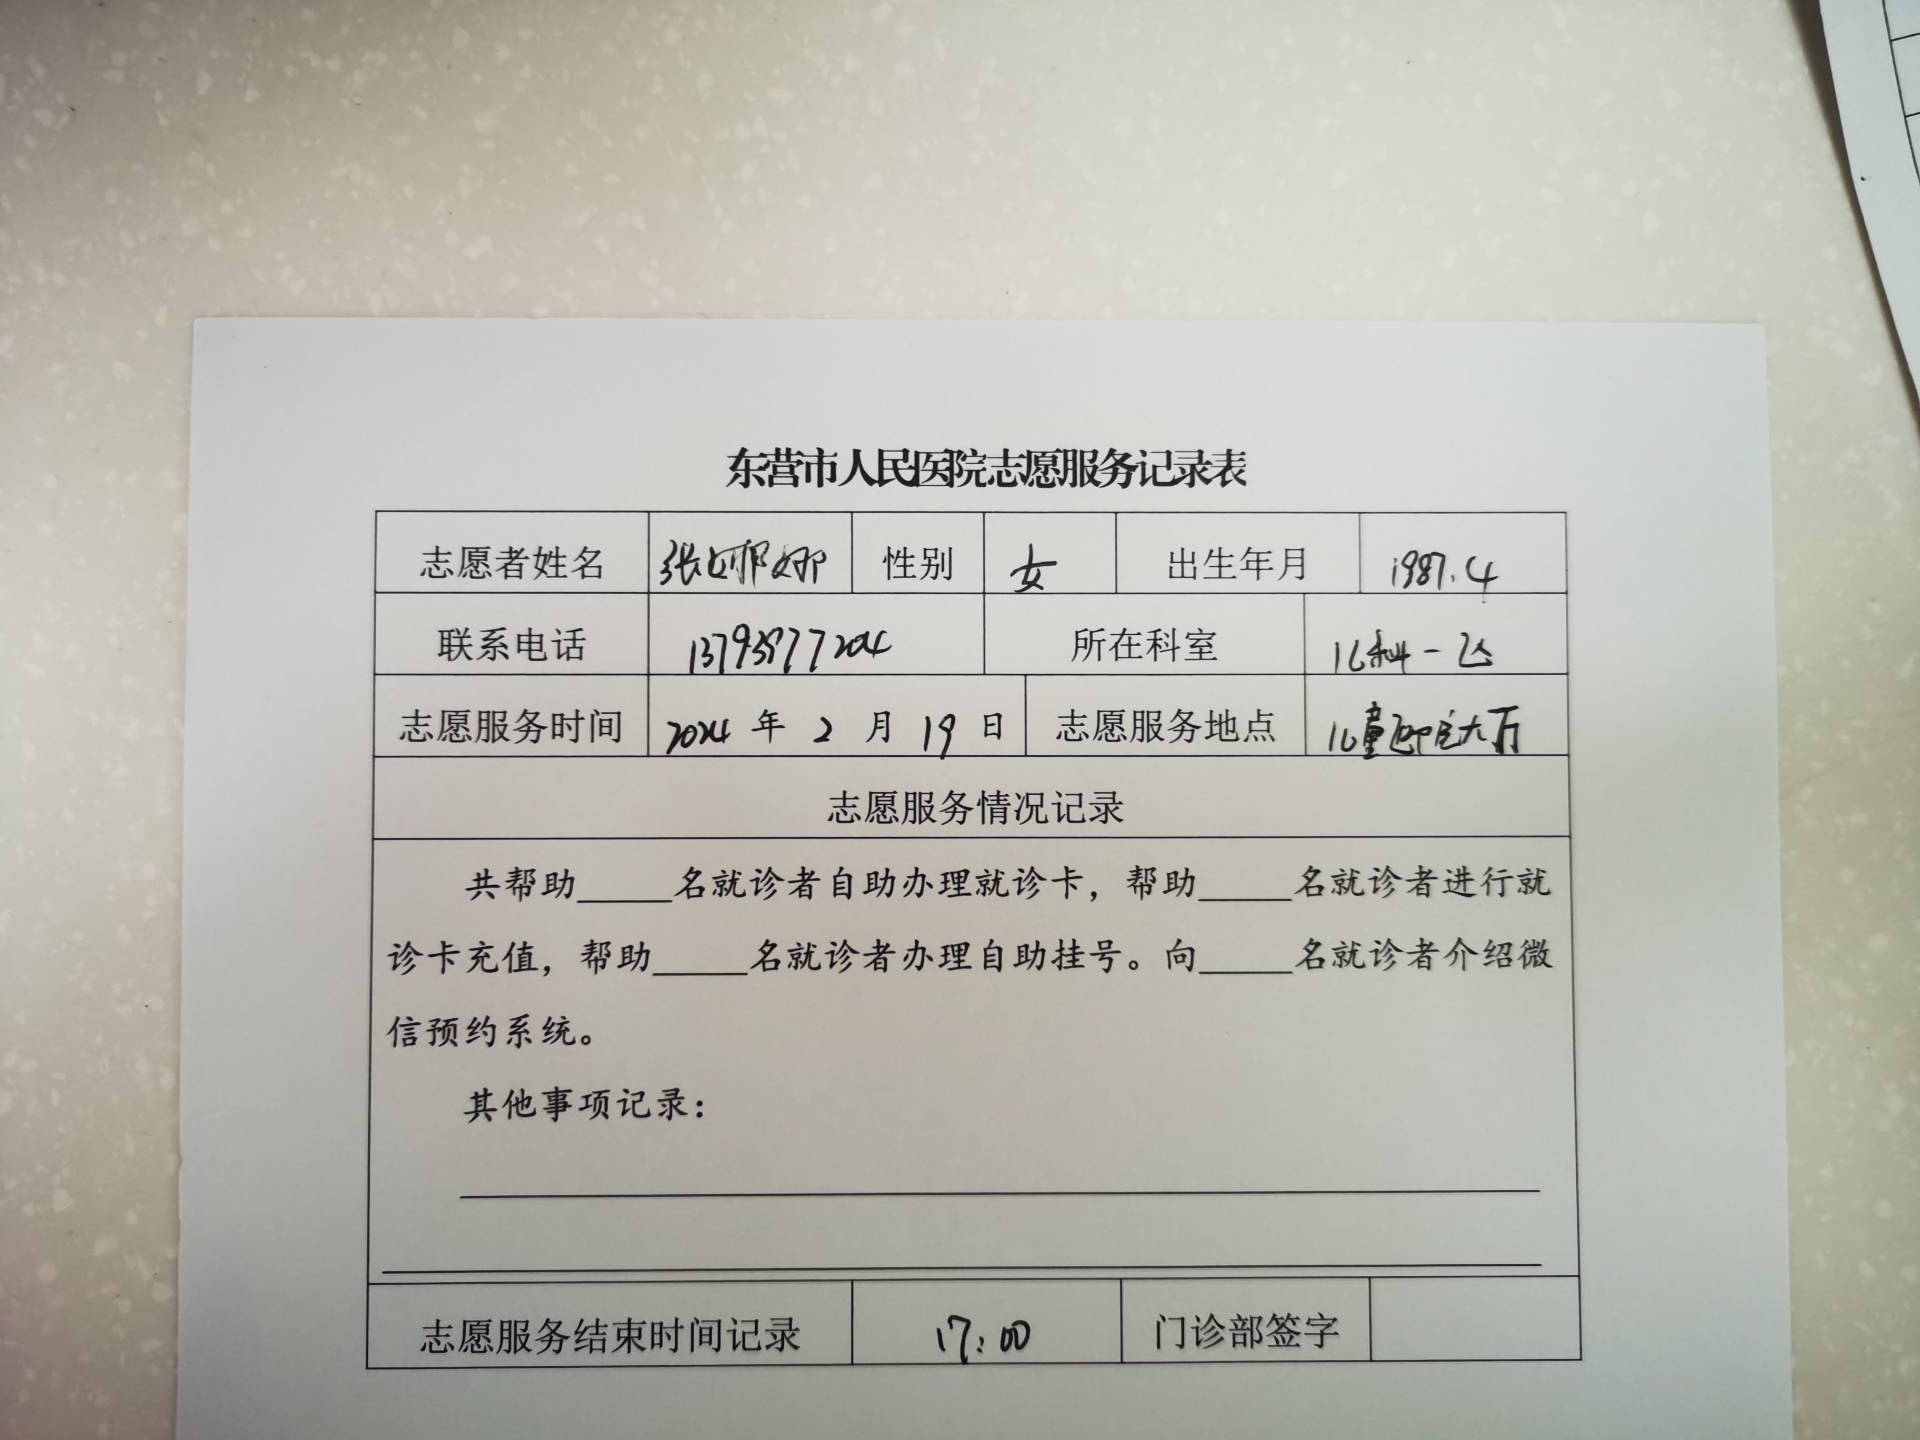 东营市人民医院志愿服务记录表
志愿者姓名 张娜娜 性别 女 出生年月 1987.4
联系电话 13793977204 所在科室 儿科一区
志愿服务时间 2024 年 2 月 19 日 志愿服务地点 儿童 大厅
志愿服务情况记录
共帮助_____名就诊者自助办理就诊卡，帮助_____名就诊者进行就
诊卡充值，帮助_____名就诊者办理自助挂号。向_____名就诊者介绍微
信预约系统。
其他事项记录：
志愿服务结束时间记录 17:00 门诊部签字